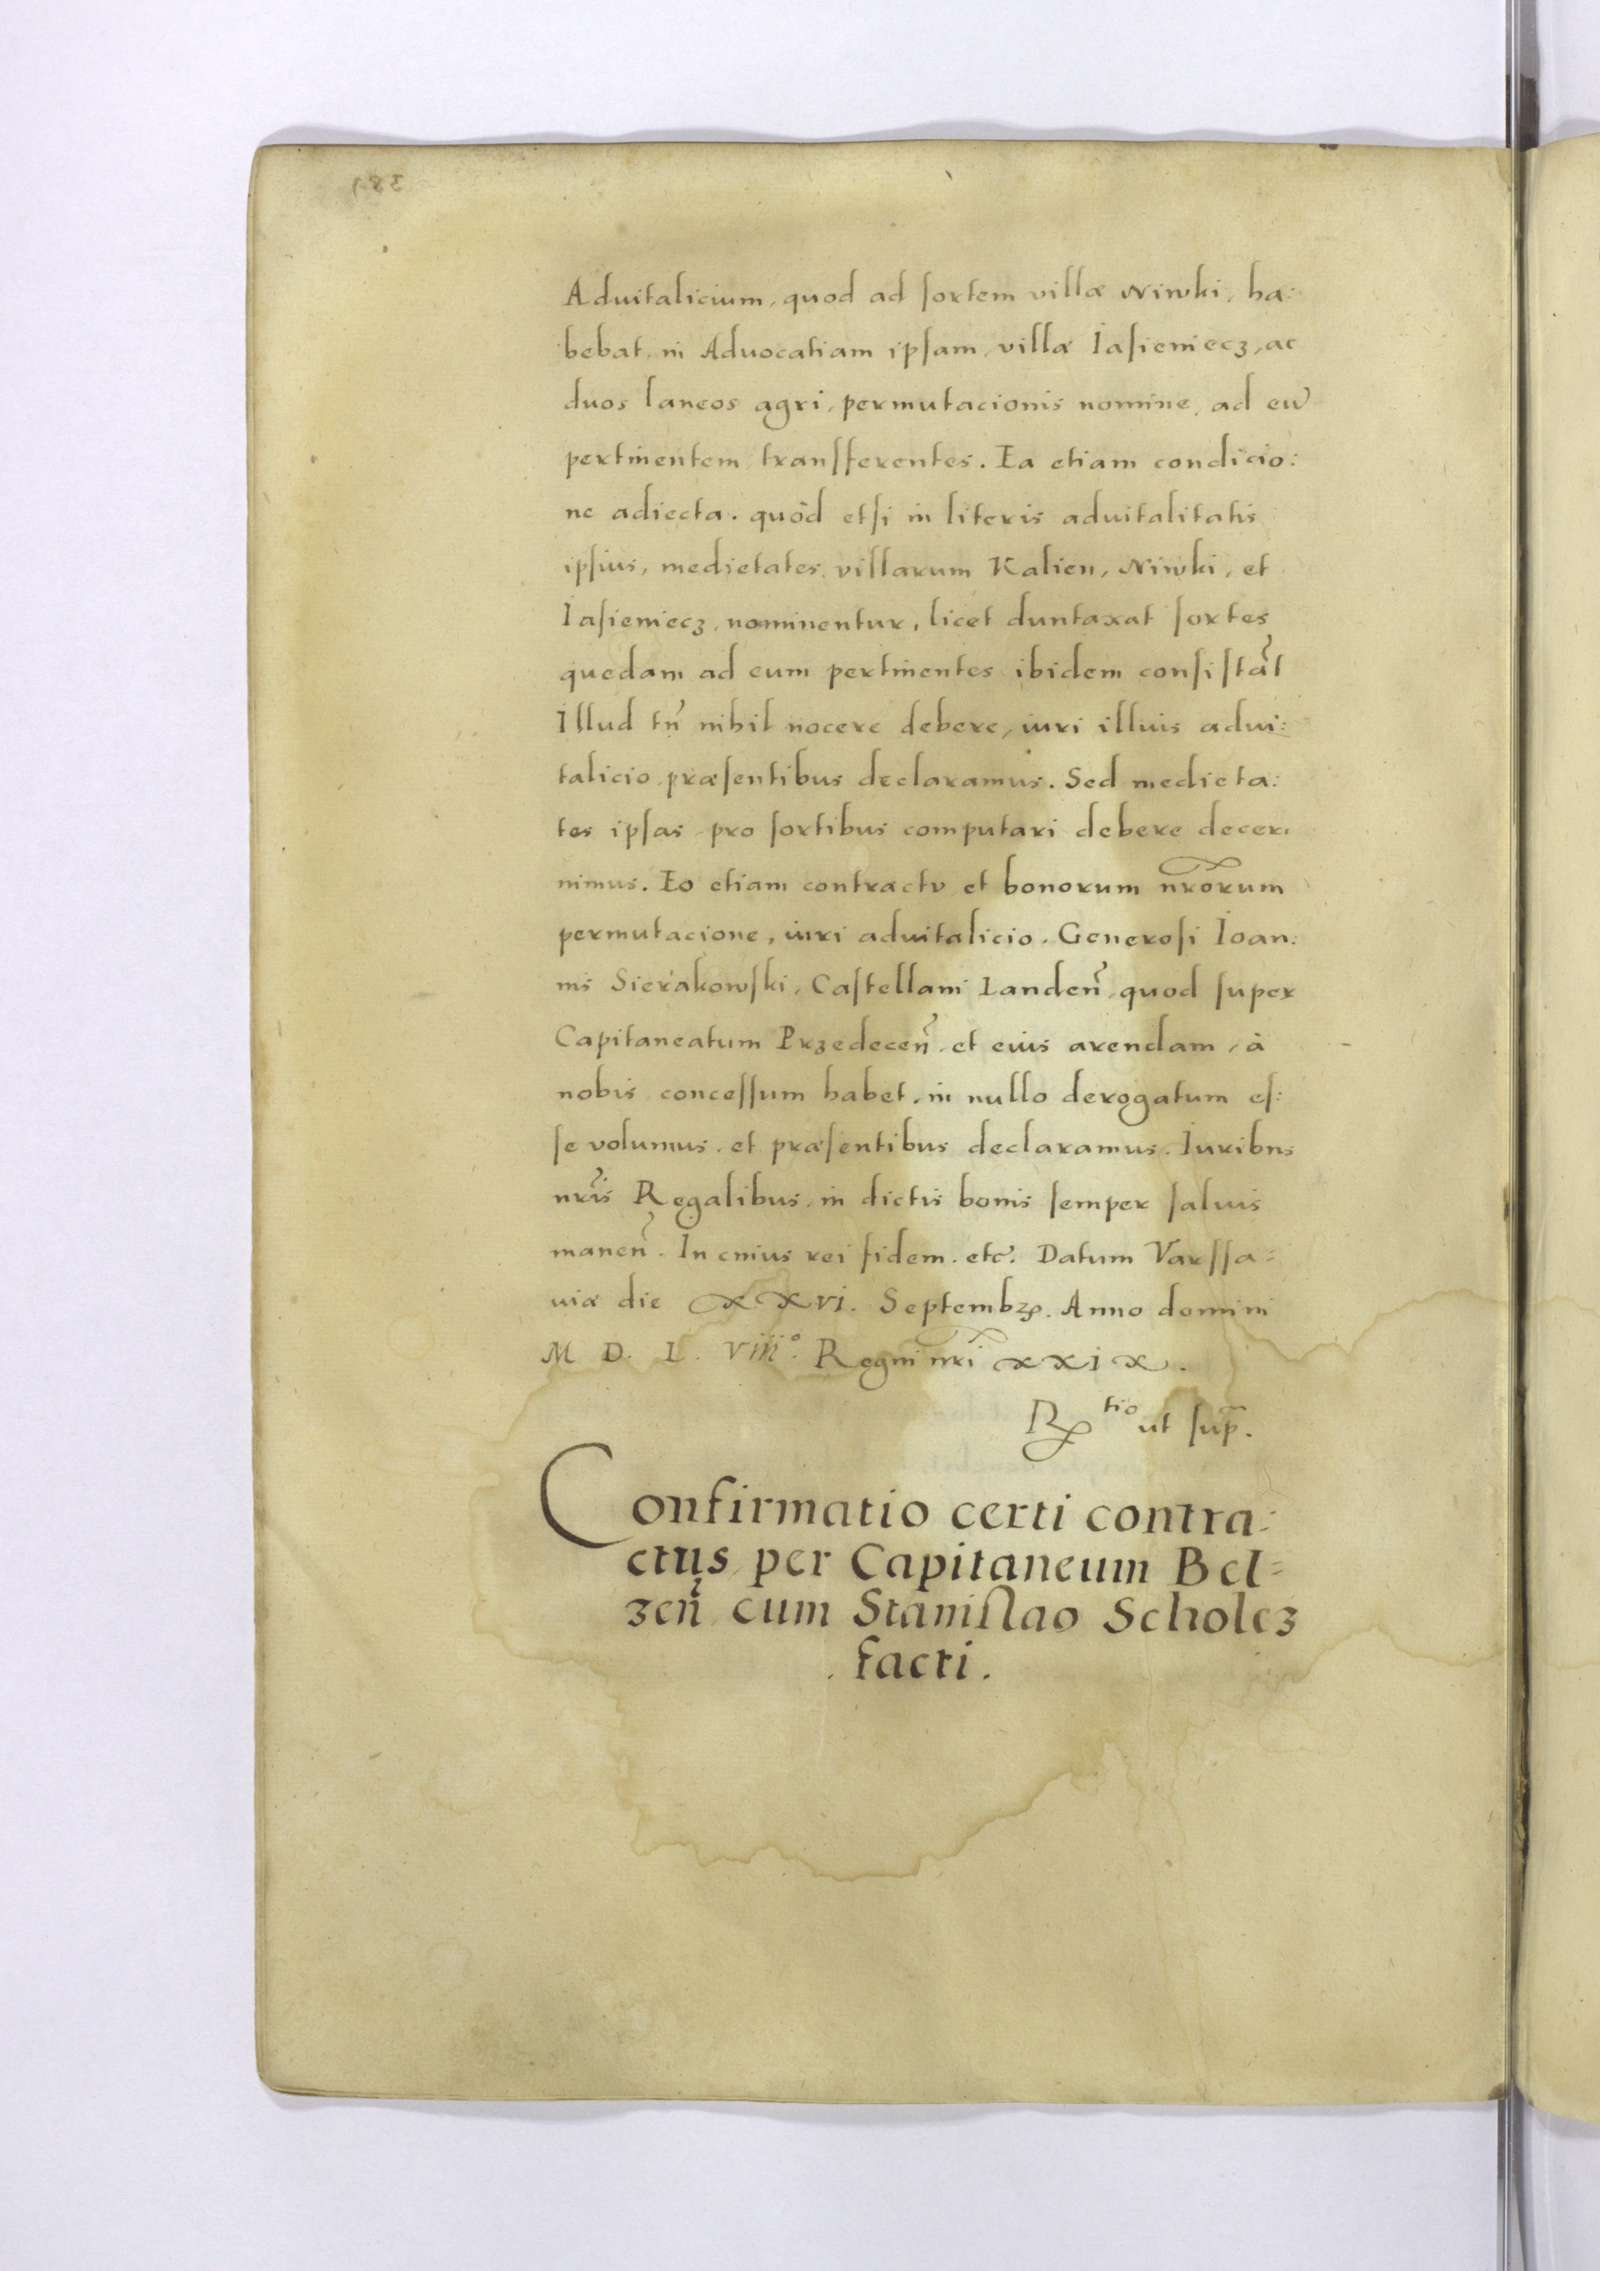 Aduitalicium, quod ad sortem villæ Niwki, ha:
bebat, in Aduocatiam ipsam, villæ Iasieniecz, ac
duos laneos agri, permutacionis nomine, ad eu͂
pertinentem transfferentes. Ea etiam condicio:
ne adiecta. quòd etsi in literis aduitalitatis
ipsius, medietates villarum Kalien, Niwki, et
Iasieniecz, nominentur, licet duntaxat sortes
quedam ad eum pertinentes ibidem consista͂t
Illud tn͂ nihil nocere debere, iuri illius adui:
talicio præsentibus declaramus. Sed medieta:
tes ipsas pro sortibus computari debere decer:
nimus. Eo etiam contractu et bonorum nr͂orum
permutacione, iuri aduitalicio. Generosi Ioan:
nis Sierakowski, Castellani Landen͂, quod super
Capitaneatum Przedecen͂. et eius arendam, à
nobis concessum habet. in nullo derogatum es:
se volumus. et præsentibus declaramus. Iuribus
nr͂is Regalibus, in dictis bonis semper saluis
manen͂. In cuius rei fidem. etc͂. Datum Varssa=
uiæ die XXVI. Septembꝝ. Anno domini
M D. L. VIII°. Regni nr͂i XXIX.
Rtio ut sup͂.
Confirmatio certi contra=
ctus, per Capitaneum Bel=
zen͂ cum Stanislao Scholcz
. facti.